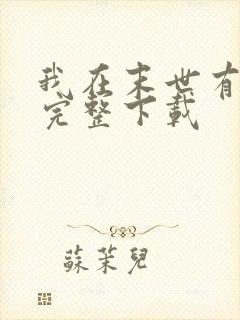 我在末世有
完整下载
蘇茉兒